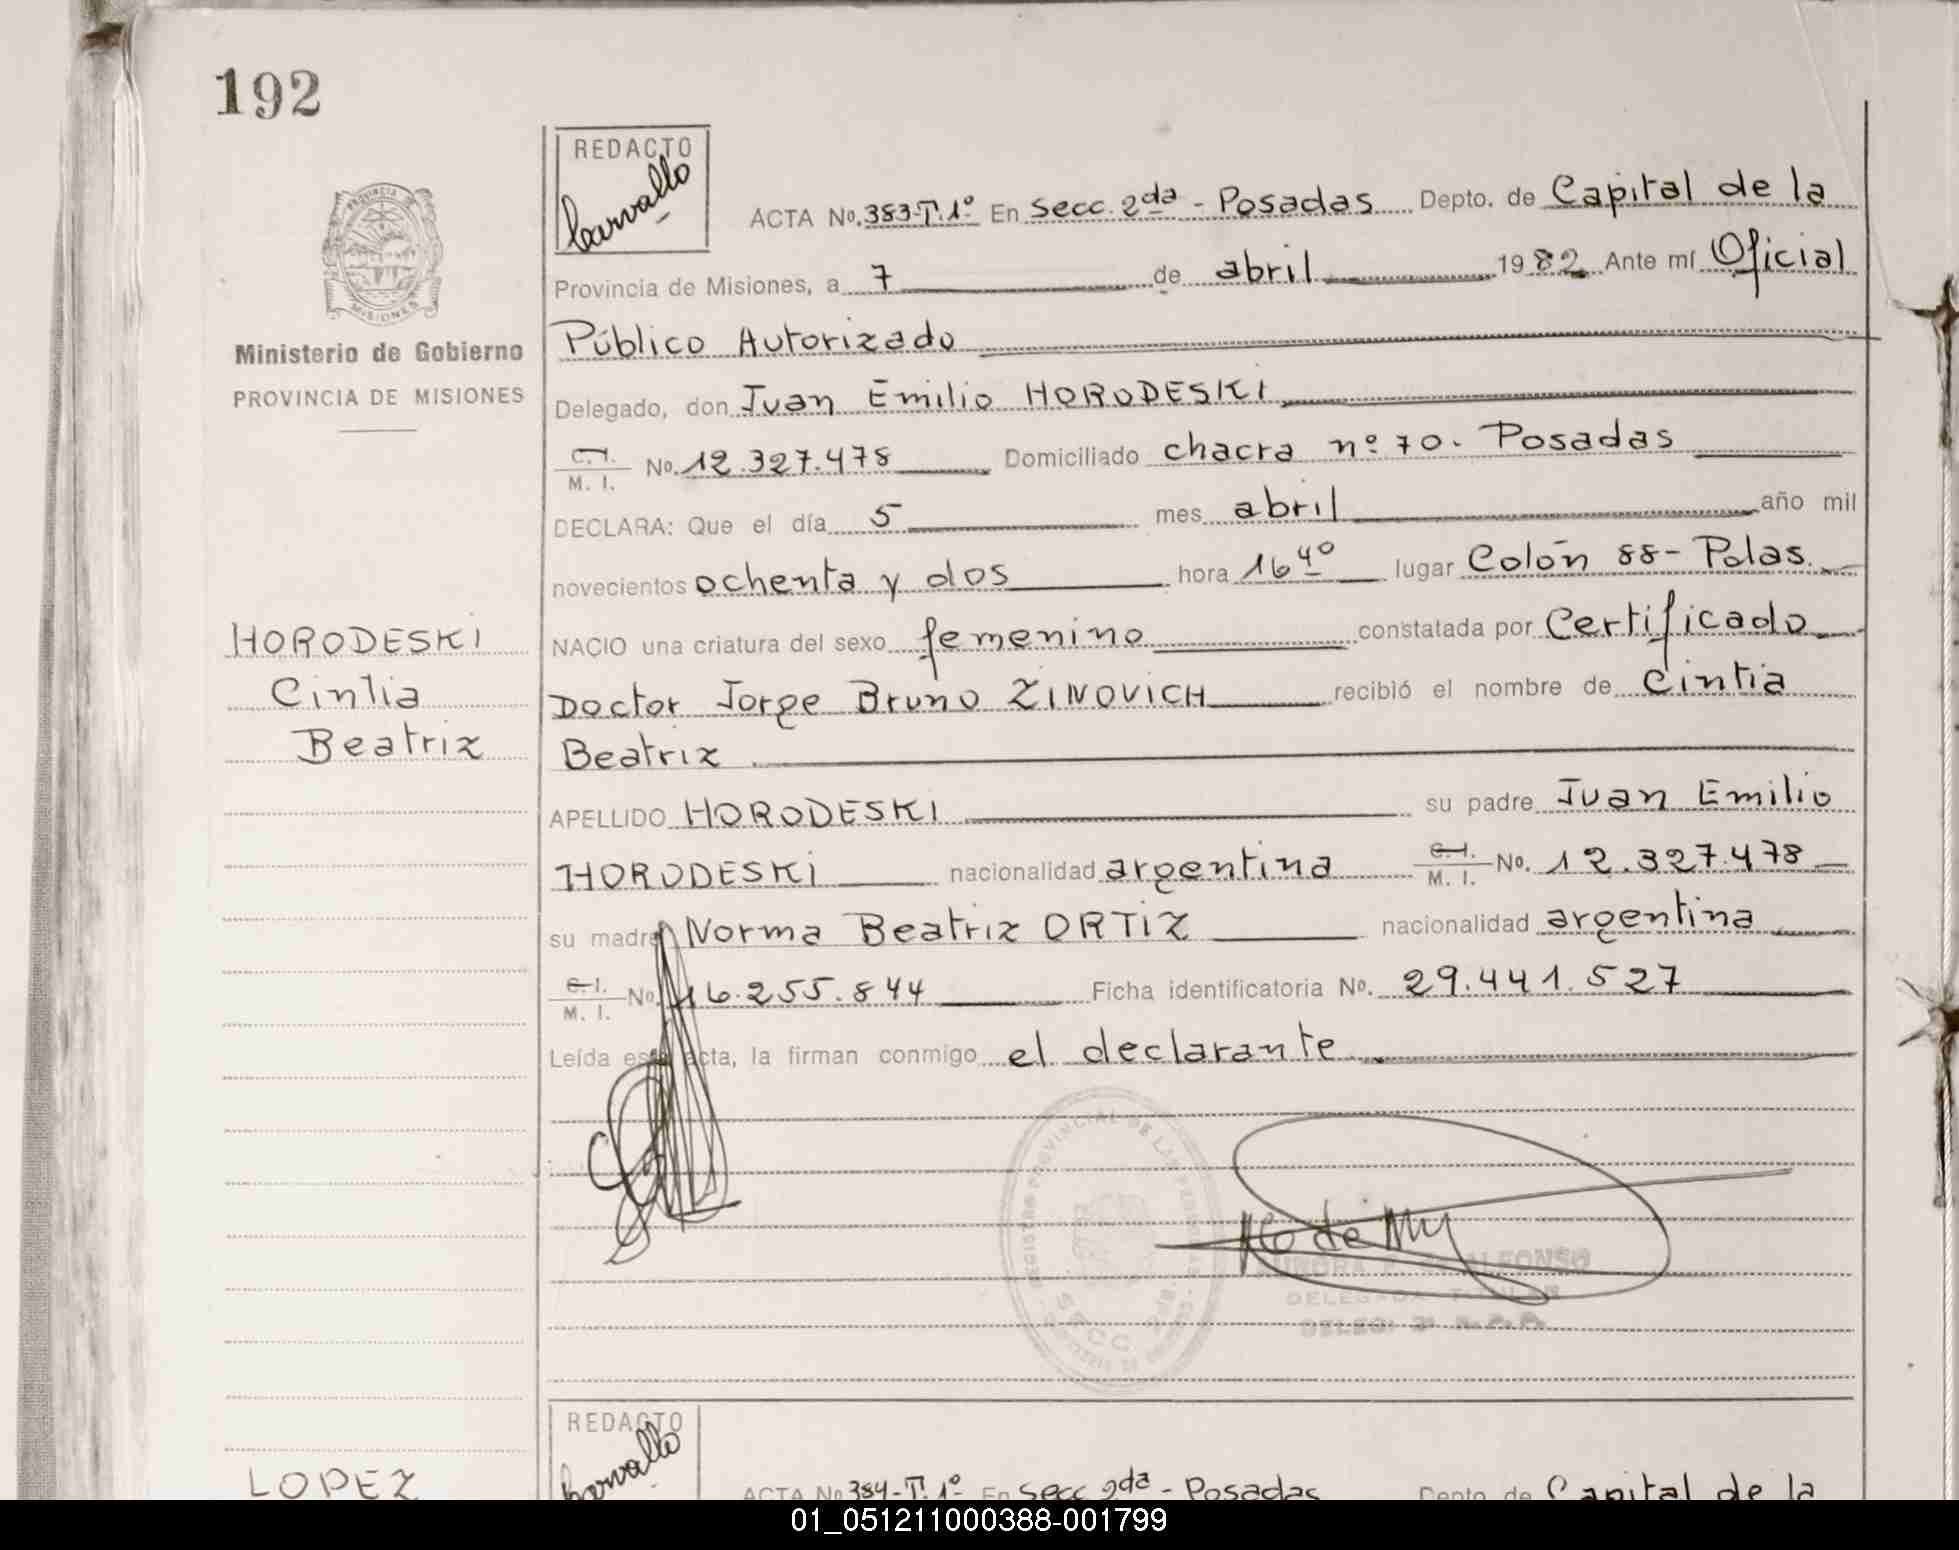 192
REDACTO
Carvallo
PROVINCIA DE MISIONES
Ministerio de Gobierno
PROVINCIA DE MISIONES
ACTA No. 383-T.1º En Secc. 2da - Posadas Depto. de Capital de la
Provincia de Misiones, a 7 de abril 1982 Ante mí Oficial
Público Autorizado
Delegado, don Juan Emilio HORODESKI
C. I. M. I. No. 12.327.478 Domiciliado chacra nº 70. Posadas
DECLARA: Que el día 5 mes abril año mil
novecientos ochenta y dos hora 16 40 lugar Colón 88 - Pdas.
NACIO una criatura del sexo femenino constatada por Certificado
Doctor Jorge Bruno ZINOVICH recibió el nombre de Cintia
Beatriz
HORODESKI
Cintia
Beatriz
APELLIDO HORODESKI su padre Juan Emilio
HORODESKI nacionalidad argentina C. I. M. I. No. 12.327.478
su madre Norma Beatriz ORTIZ nacionalidad argentina
C. I. M. I. No. 16.255.844 Ficha identificatoria No. 29.441.527
Leída esta acta, la firman conmigo el declarante
REGISTRO PROVINCIAL DE LAS PERSONAS
SECC. 2da.
ALFONSO
DELEGADA TITULAR
REDACTO
Carvallo
LOPEZ
ACTA No 384-T.1º En Secc 2da - Posadas Depto de Capital de la
01_051211000388-001799